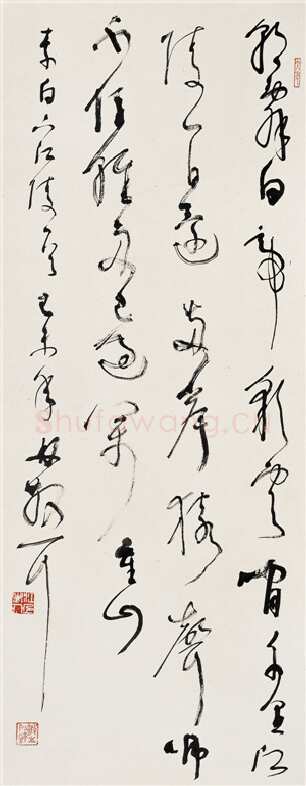 朝辞白帝彩云间千里江
陵一日还两岸猿声啼
不住轻舟已过万重山
李白下江陵 己未年 林散耳
shufawang.cn